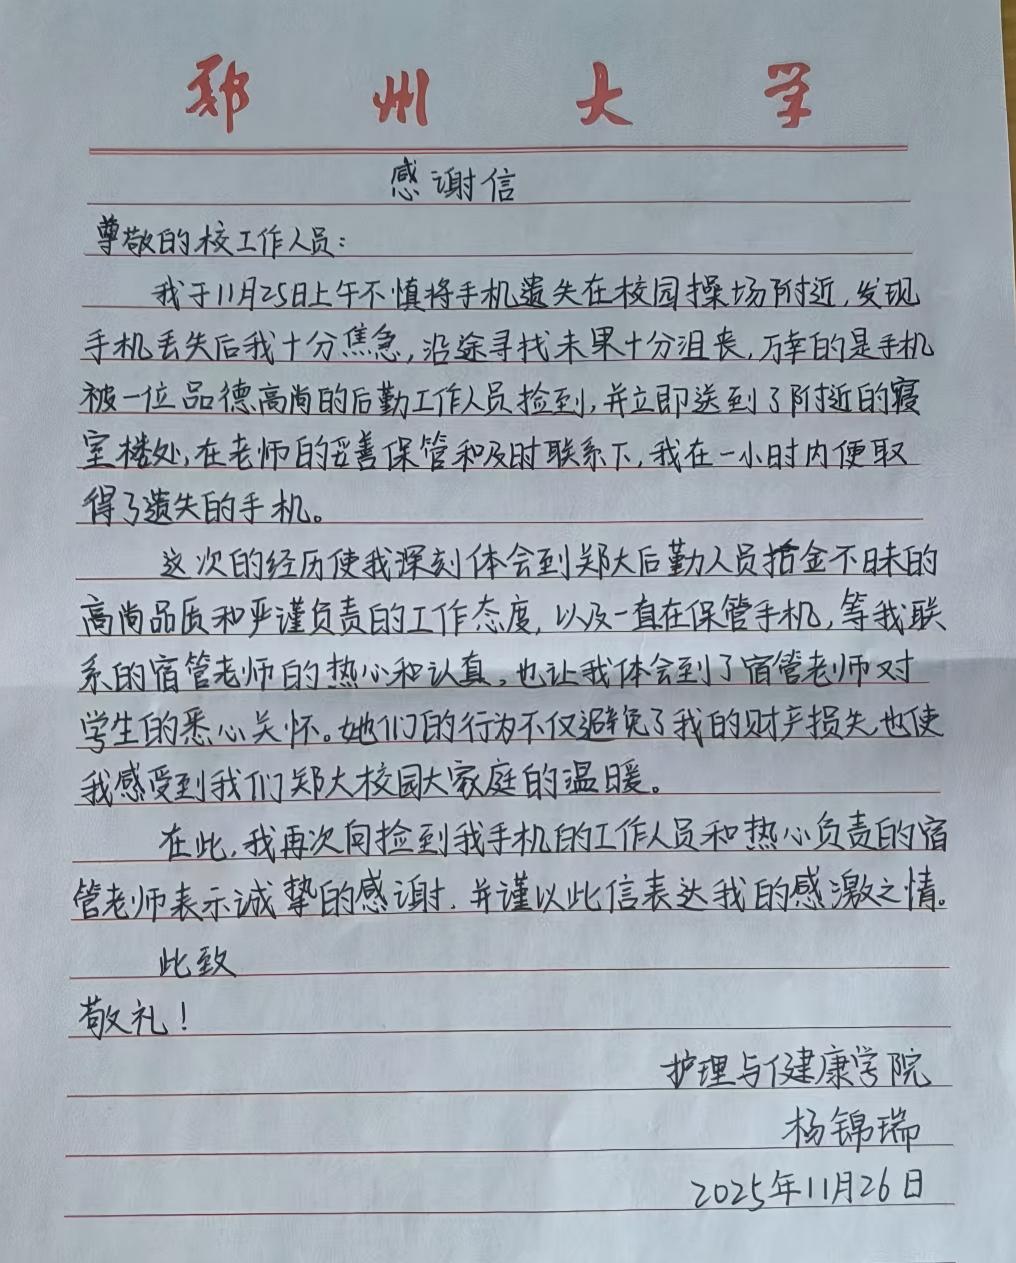 郑州大学
感谢信
尊敬的校工作人员：
我于11月25日上午不慎将手机遗失在校园操场附近，发现
手机丢失后我十分焦急，沿途寻找未果十分沮丧，万幸的是手机
被一位品德高尚的后勤工作人员捡到，并立即送到了附近的寝
室楼处，在老师的妥善保管和及时联系下，我在一小时内便取
得了遗失的手机。
这次的经历使我深刻体会到郑大后勤人员拾金不昧的
高尚品质和严谨负责的工作态度，以及一直在保管手机，等我联
系的宿管老师的热心和认真，也让我体会到了宿管老师对
学生的悉心关怀。她们的行为不仅避免了我的财产损失，也使
我感受到我们郑大校园大家庭的温暖。
在此，我再次向捡到我手机的工作人员和热心负责的宿
管老师表示诚挚的感谢，并谨以此信表达我的感激之情。
此致
敬礼！
护理与健康学院
杨锦瑞
2025年11月26日